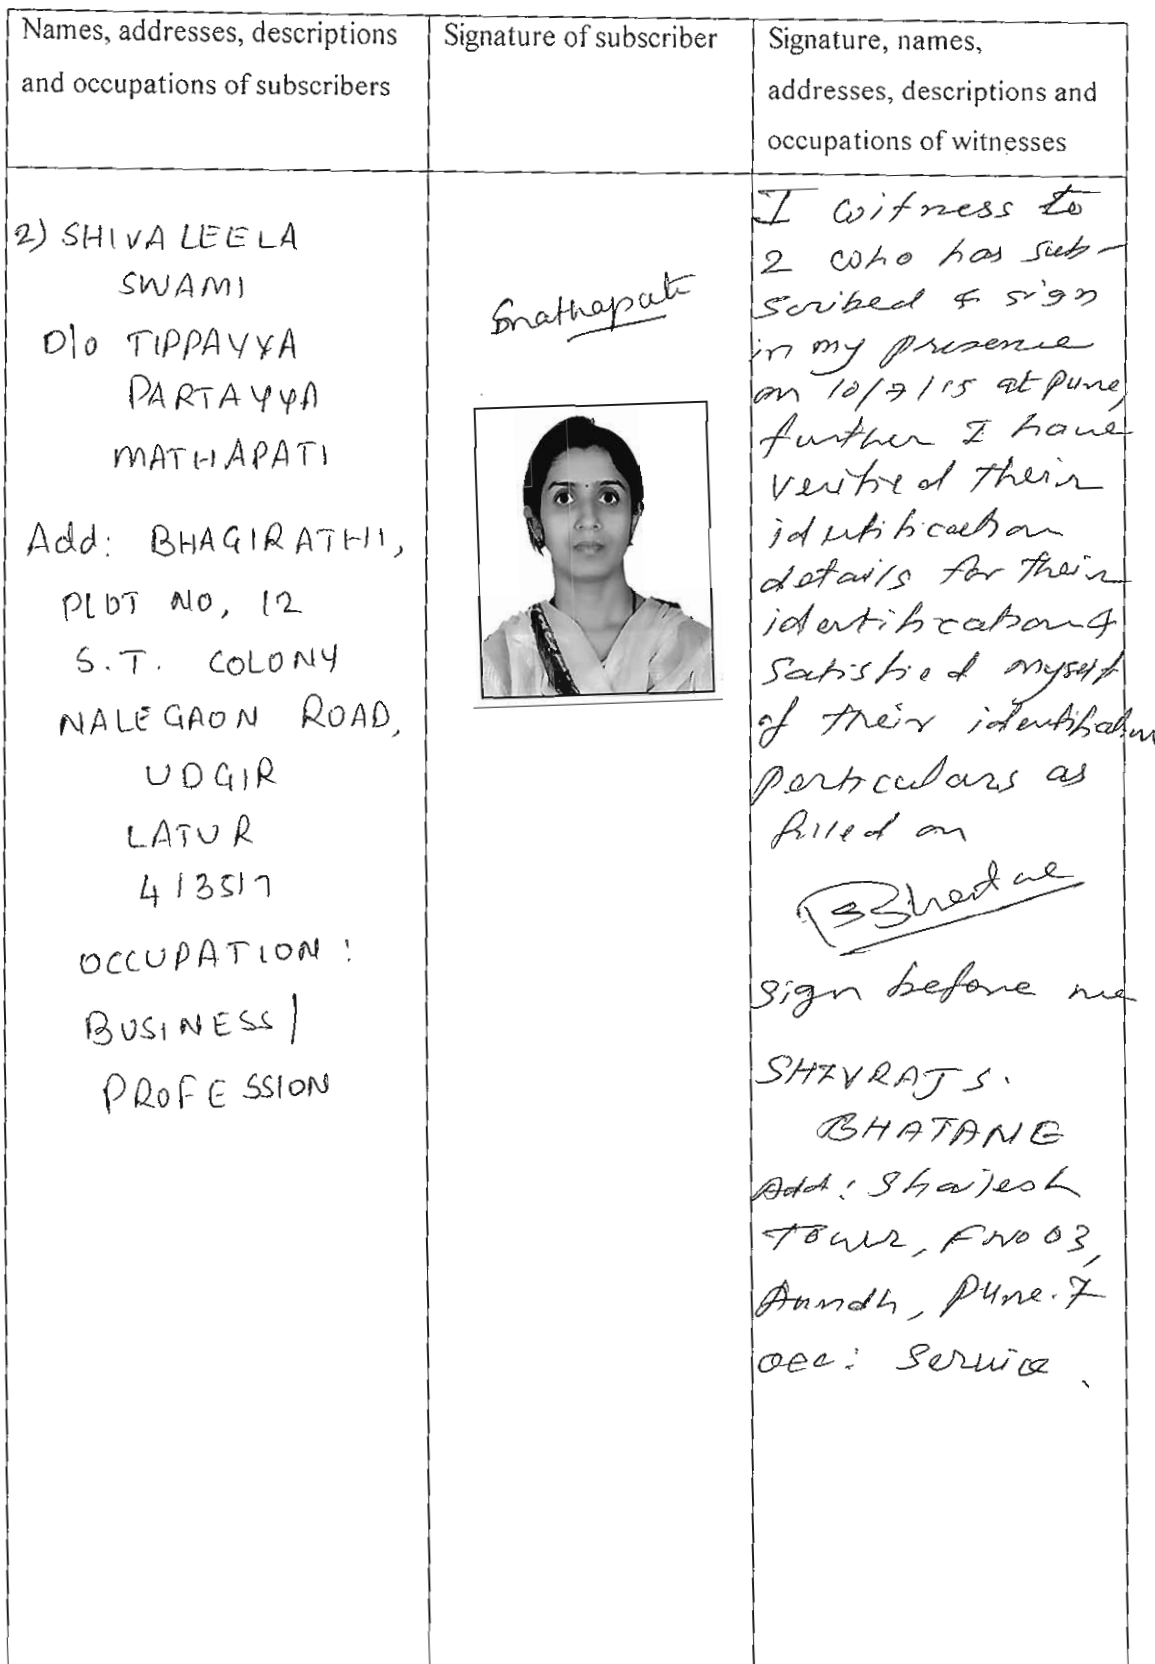 Names, addresses, descriptions
and occupations of subscribers
Signature of subscriber
Signature, names,
addresses, descriptions and
occupations of witnesses
2) SHIVALEELA
SWAMI
D/o TIPPAYYA
PARTAYYA
MATHAPATI
Add: BHAGIRATHI,
PLOT NO, 12
S.T. COLONY
NALEGAON ROAD,
UDGIR
LATUR
413517
OCCUPATION:
BUSINESS/
PROFESSION
Smathapati
I witness to
2 who has sub-
scribed & sign
in my presence
on 10/7/15 at Pune,
further I have
verified their
identification
details for their
identification &
satisfied myself
of their identification
particulars as
filled on
sign before me
SHIVRAJ S.
BHATANE
Add: Shailesh
Tower, F no 03,
Aundh, Pune.7
occ: Service.